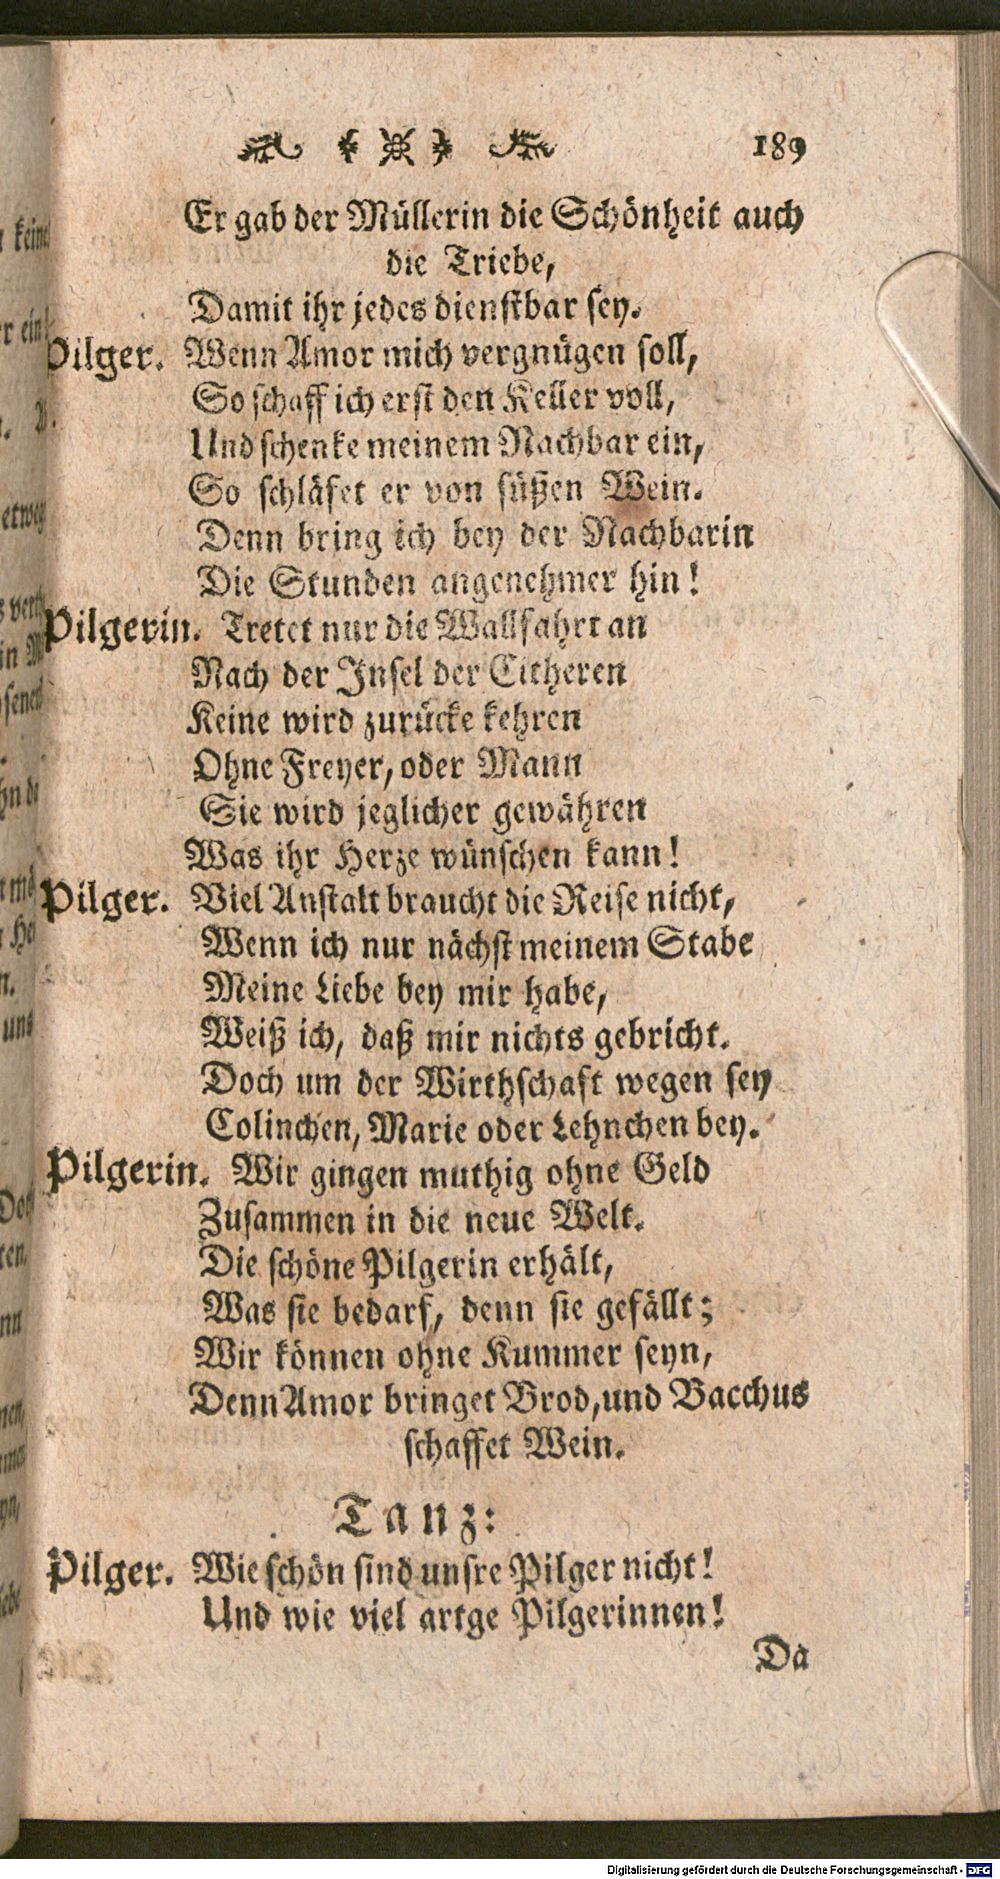 189
Er gab der Müllerin die Schönheit auch
die Triebe,
Damit ihr jedes dienstbar sey.
Pilger. Wenn Amor mich vergnügen soll,
So schaff ich erst den Keller voll,
Und schenke meinem Nachbar ein,
So schläfet er von süßen Wein.
Denn bring ich bey der Nachbarin
Die Stunden angenehmer hin!
Pilgerin. Tretet nur die Wallfahrt an
Nach der Insel der Citheren
Keine wird zurücke kehren
Ohne Freyer, oder Mann
Sie wird jeglicher gewähren
Was ihr Herze wünschen kann!
Pilger. Viel Anstalt braucht die Reise nicht,
Wenn ich nur nächst meinem Stabe
Meine Liebe bey mir habe,
Weiß ich, daß mir nichts gebricht.
Doch um der Wirthschaft wegen sey
Colinchen, Marie oder Lehnchen bey.
Pilgerin. Wir gingen muthig ohne Geld
Zusammen in die neue Welt.
Die schöne Pilgerin erhält,
Was sie bedarf, denn sie gefällt;
Wir können ohne Kummer seyn,
Denn Amor bringet Brod, und Bacchus
schaffet Wein.
Tanz:
Pilger. Wie schön sind unsre Pilger nicht!
Und wie viel artge Pilgerinnen!
Da
Digitalisierung gefördert durch die Deutsche Forschungsgemeinschaft - DFG